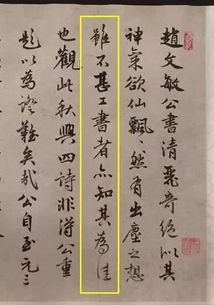 趙文敏公書清飛奇絕以其
神氣欲仙飄〻然有出塵之想
雖不甚工書者亦知其為佳
也觀此秋興四詩非得公重
題以為證難矣哉公自至元三